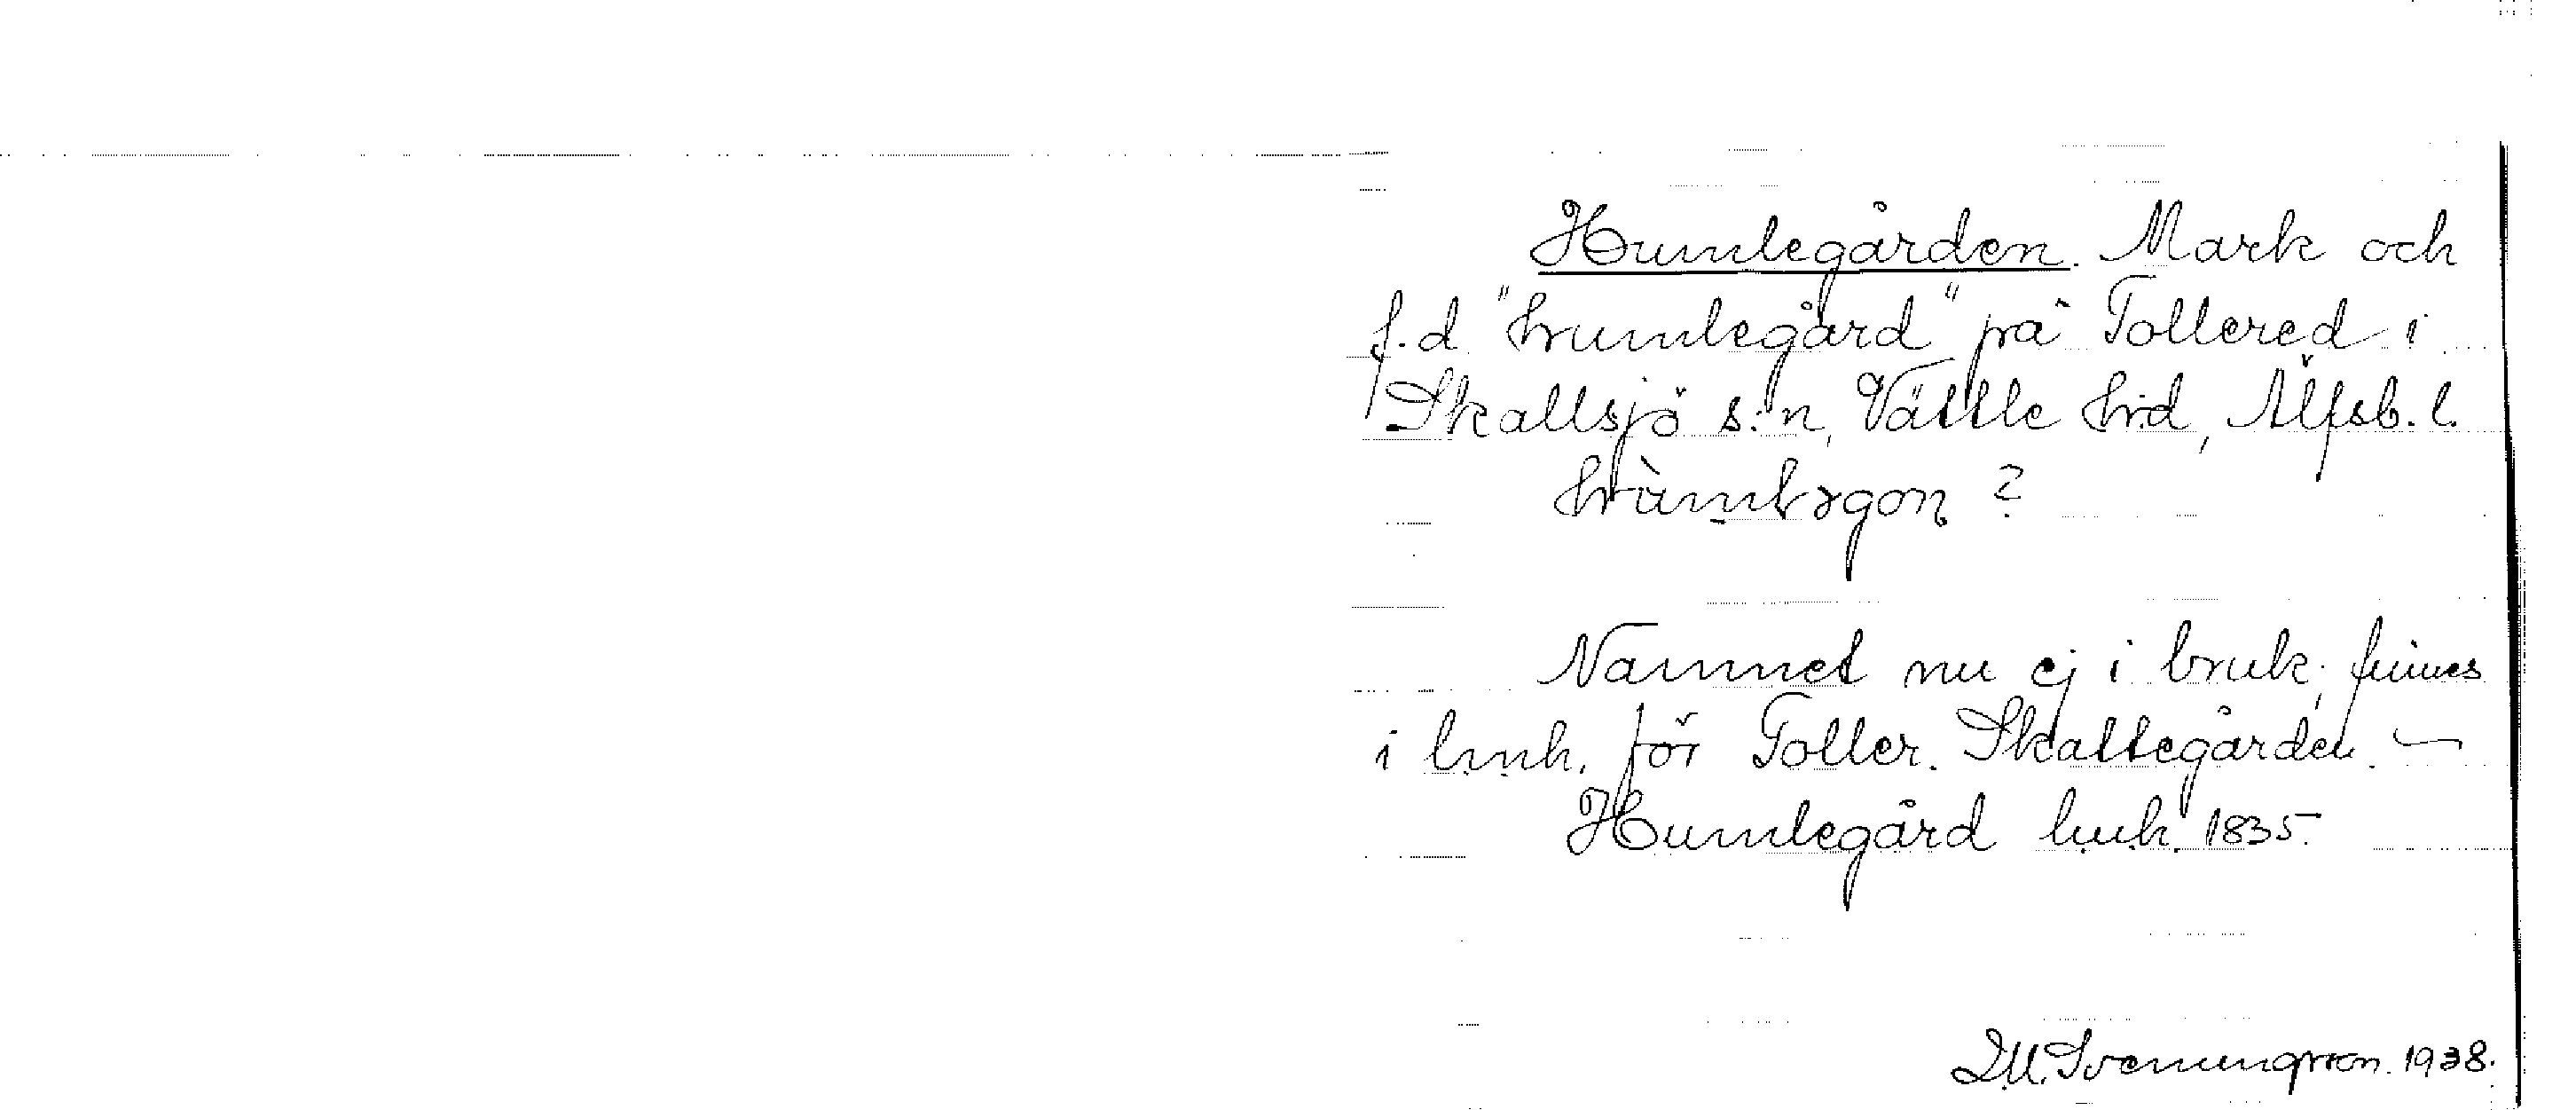 Humlegården. Mark och
f.d "humlegård" på Tollered i
Skallsjö s:n, Vättle hd, Älfsb. l.
?
Namnet nu ej i bruk; finnes
i lmh. för Toller. Skattegården. —
Humlegård lmh. 1835.
D.U. Svenungsson. 1938.